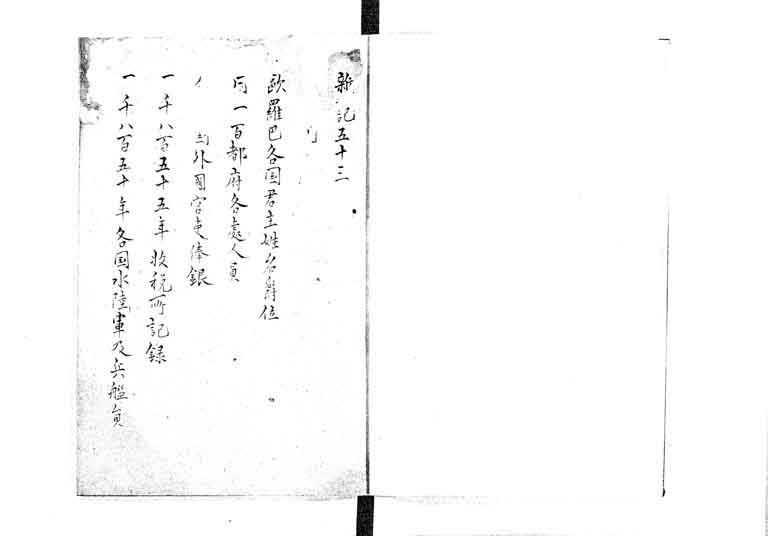 雑記五十三
欧羅巴各国君主姓名爵位
同一百都府各處人員
外國官吏俸銀
一千八百五十五年收税所記録
一千八百五十年各国水陸軍及兵艦員